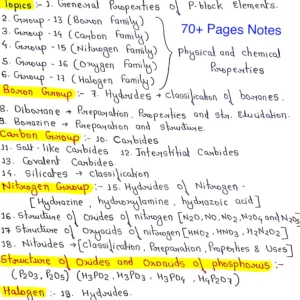 Topics :- 1. General Properties of P-block Elements.
2. Group - 13 (Boron Family)
3. Group - 14 (Carbon Family)
4. Group - 15 (Nitrogen Family)
5. Group - 16 (Oxygen Family)
6. Group - 17 (Halogen Family)
70+ Pages Notes
Physical and chemical
Properties
Boron Group :- 7. Hydrides → Classification of boranes.
8. Diborane → Preparation, Properties and str. Elucidation.
9. Borazine → Preparation and structure.
Carbon Group :- 10. Carbides
11. Salt-like Carbides 12. Interstitial Carbides
13. Covalent Carbides.
14. Silicates → classification
Nitrogen Group :- 15. Hydrides of Nitrogen -
[Hydrazine, hydroxylamine, hydrazoic acid]
16. Structure of Oxides of nitrogen [N2O, NO, NO2, N2O4 and N2O5]
17 Structure of Oxyacids of nitrogen [HNO2, HNO3, H2N2O2]
18. Nitrides → [Classification, Preparation, Properties & Uses]
Structure of Oxides and Oxoacids of phosphorus :-
(P2O3, P2O5) (H3PO2, H3PO3, H3PO4, H4P2O7)
Halogen :- 19. Hydrides.